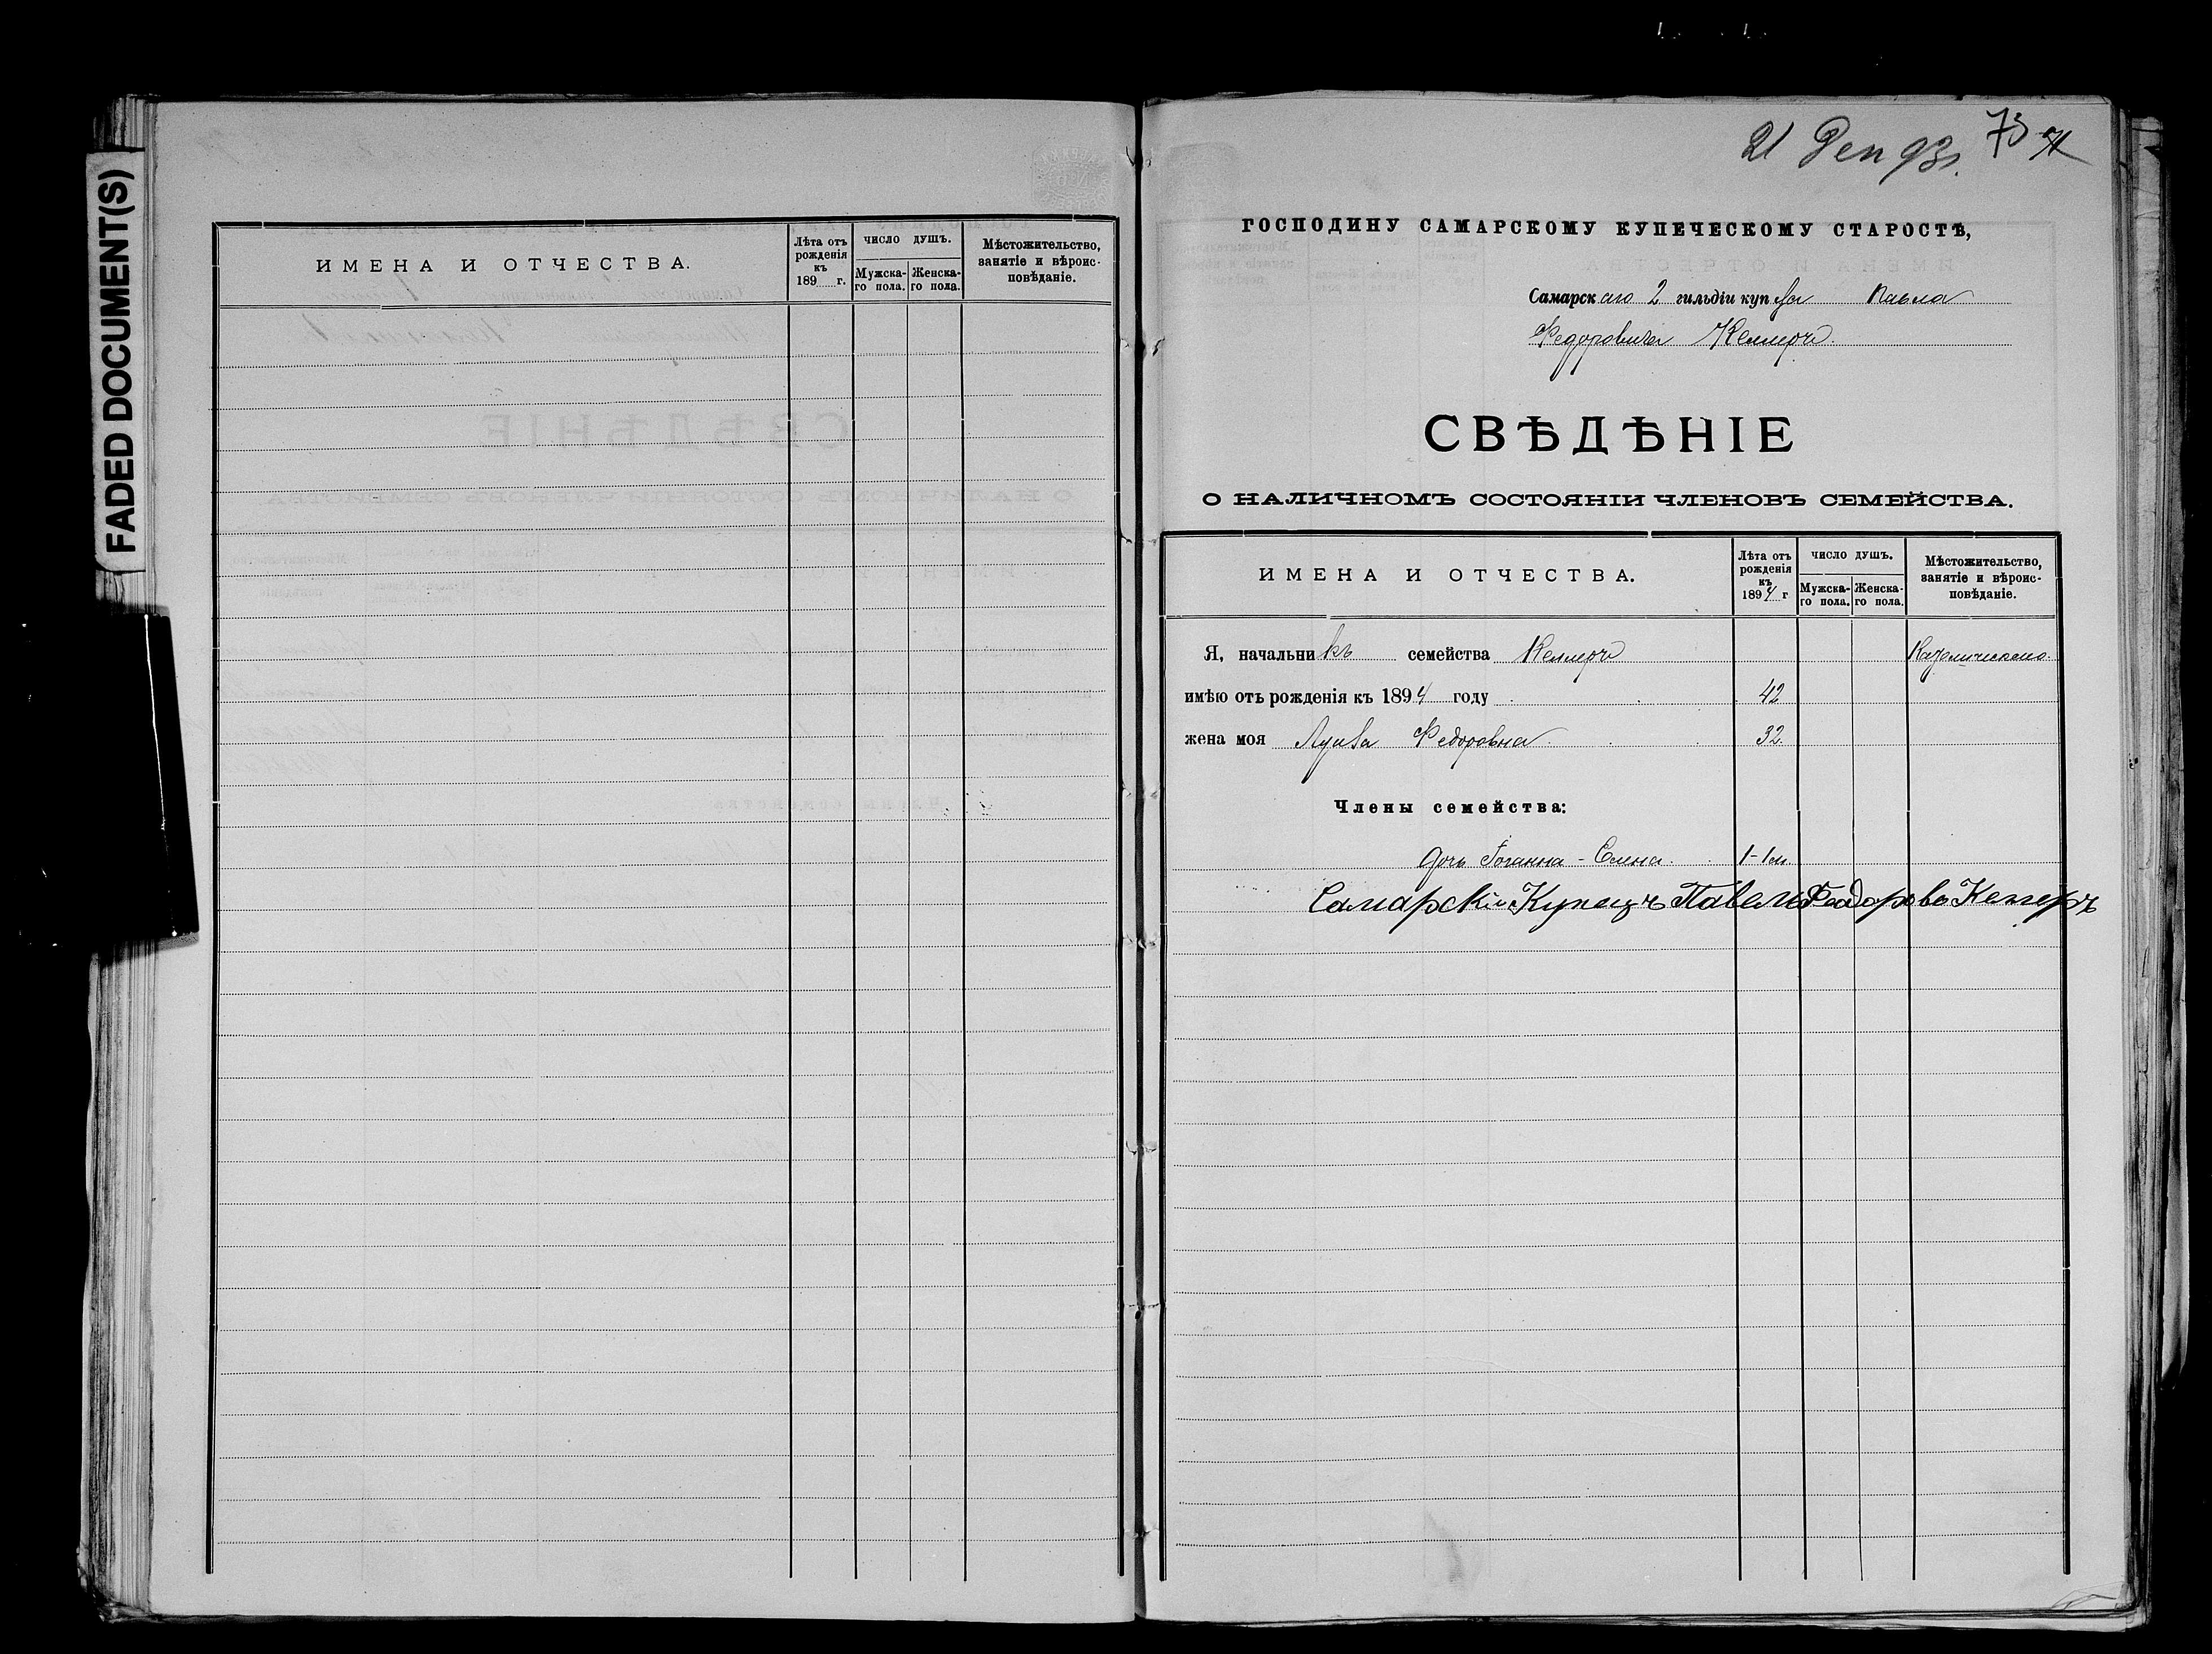 FADED DOCUMENT(S)
ИМЕНА И ОТЧЕСТВА.
Лѣта отъ рожденія къ 189 г.
ЧИСЛО ДУШЪ.
Мужска-го пола.
Женска-го пола.
Мѣстожительство, занятіе и вѣроис-повѣданіе.
21 Дек 93г. 73
ГОСПОДИНУ САМАРСКОМУ КУПЕЧЕСКОМУ СТАРОСТѢ,
Самарскаго 2 гильдіи купца Павла
Федоровича Келлеръ
СВѢДѢНІЕ
О НАЛИЧНОМЪ СОСТОЯНІИ ЧЛЕНОВЪ СЕМЕЙСТВА.
ИМЕНА И ОТЧЕСТВА.
Лѣта отъ рожденія къ 1894 г
ЧИСЛО ДУШЪ.
Мужска-го пола.
Женска-го пола.
Мѣстожительство, занятіе и вѣроис-повѣданіе.
Я, начальникъ семейства Келлеръ
имѣю отъ рожденія къ 1894 году 42
жена моя Луиза Федоровна 32
Члены семейства:
дочь Іоганна-Елена 1-1м
Самарскій Купецъ Павелъ Феодоровъ Келлеръ